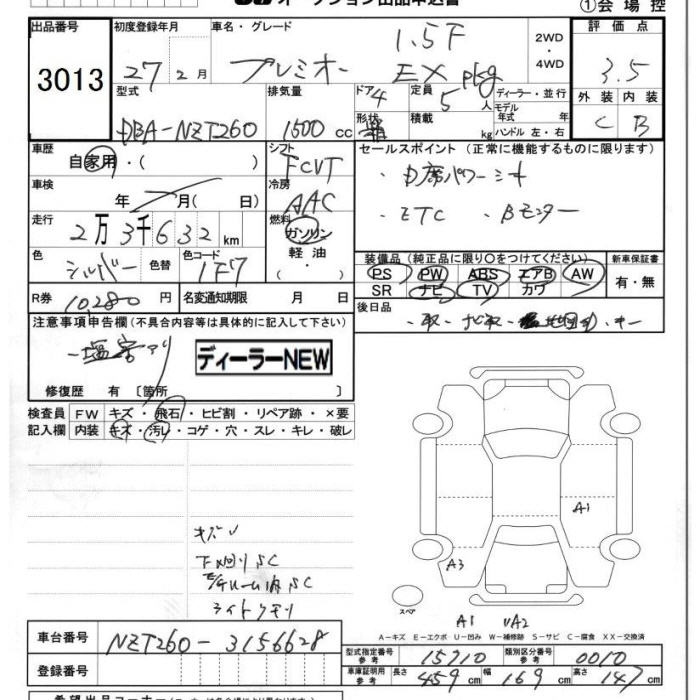 オークション出品申込書
①会場控
出品番号 初度登録年月 車名・グレード 2WD ・ 4WD 評価点
3013 27 2月 プレミオ 1.5F EX pkg 3.5
型式 排気量 ドア 4 定員 5人 ディーラー・並行 外装 内装
DBA-NZT260 1500 cc 形状 積載 kg モデル年式 年 ハンドル 左・右 C B
車歴 自家用・( ) シフト FCVT セールスポイント (正常に機能するものに限ります)
車検 年 月( 日) 冷房 AAC ・ ETC ・Bモニター
走行 2万3千632km 燃料 ガソリン・軽油・
色 シルバー 色替 色コード 1F7 装備品 (純正品に限り○をつけてください) 新車保証書
PS PW ABS エアB AW 有・無
SR ナビ TV カワ
R券 10,280円 名変通知期限 月 日 後日品
注意事項申告欄 (不具合内容等は具体的に記入して下さい)
塩害アリ ディーラーNEW
修復歴 有 [箇所 ]
検査員 FW キズ・飛石・ヒビ割・リペア跡・×要
記入欄 内装 キズ・汚れ・コゲ・穴・スレ・キレ・破レ
A1
キズ
A3
ライトクモリ
スペア
A1 UA2
A-キズ E-エクボ U-凹み W-補修跡 S-サビ C-腐食 XX-交換済
車台番号 NZT260-3156628
型式指定番号 参考 15710 類別区分番号 参考 0010
登録番号
車庫証明用 参考 長さ 459cm 幅 169cm 高さ 147cm